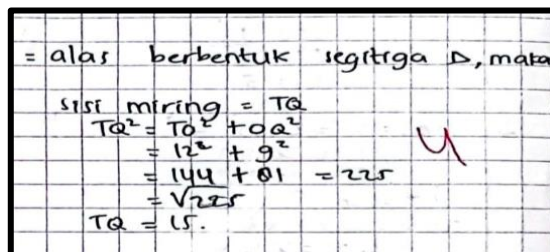 = alas berbentuk segitiga △, maka
sisi miring = TQ
TQ² = TO² + OQ²
= 12² + 9²
= 144 + 81 = 225
= √225
TQ = 15.